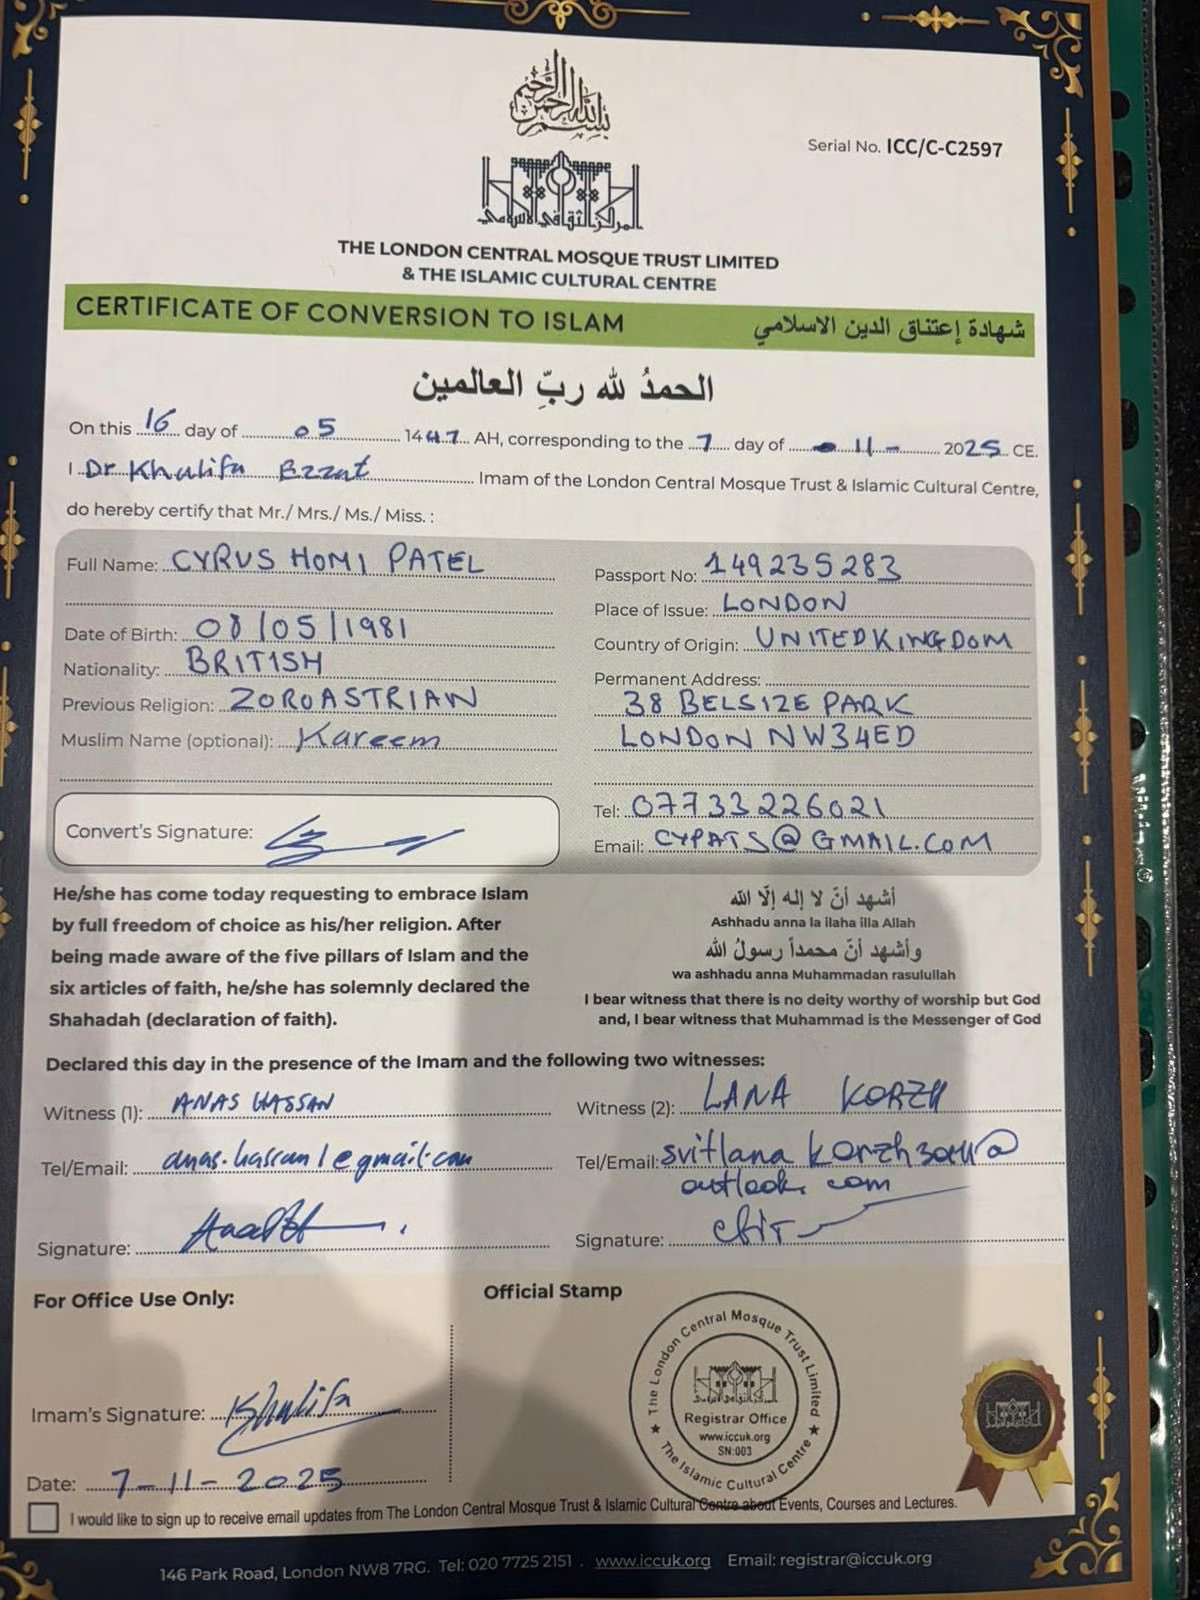 بسم الله الرحمن الرحيم
Serial No. ICC/C-C2597
المركز الثقافي الاسلامي
THE LONDON CENTRAL MOSQUE TRUST LIMITED
& THE ISLAMIC CULTURAL CENTRE
CERTIFICATE OF CONVERSION TO ISLAM شهادة إعتناق الدين الاسلامي
الحمدُ لله ربِّ العالمين
On this 16 day of 05 1447 AH, corresponding to the 7 day of 11 2025 CE.
I Dr Khalifa Ezzat Imam of the London Central Mosque Trust & Islamic Cultural Centre,
do hereby certify that Mr./ Mrs./ Ms./ Miss. :
Full Name: CYRUS HOMI PATEL
Date of Birth: 08/05/1981
Nationality: BRITISH
Previous Religion: ZOROASTRIAN
Muslim Name (optional): Kareem
Convert's Signature:
Passport No: 149235283
Place of Issue: LONDON
Country of Origin: UNITED KINGDOM
Permanent Address:
38 BELSIZE PARK
LONDON NW34ED
Tel: 07733226021
Email: CYPATS@GMAIL.COM
He/she has come today requesting to embrace Islam
by full freedom of choice as his/her religion. After
being made aware of the five pillars of Islam and the
six articles of faith, he/she has solemnly declared the
Shahadah (declaration of faith).
أشهد أنّ لا إله إلّا الله
Ashhadu anna la ilaha illa Allah
وأشهد أنّ محمداً رسولُ الله
wa ashhadu anna Muhammadan rasulullah
I bear witness that there is no deity worthy of worship but God
and, I bear witness that Muhammad is the Messenger of God
Declared this day in the presence of the Imam and the following two witnesses:
Witness (1): ANAS HASSAN
Tel/Email: anas.hassan1@gmail.com
Signature:
Witness (2): LANA KORZH
Tel/Email: svitlana
outlook.com
Signature:
For Office Use Only:
Imam's Signature: Khalifa
Date: 7-11-2025
Official Stamp
The London Central Mosque Trust Limited
★ The Islamic Cultural Centre ★
المركز الثقافي الاسلامي
Registrar Office
www.iccuk.org
SN:003
I would like to sign up to receive email updates from The London Central Mosque Trust & Islamic Cultural Centre about Events, Courses and Lectures.
146 Park Road, London NW8 7RG. Tel: 020 7725 2151 . www.iccuk.org Email: registrar@iccuk.org